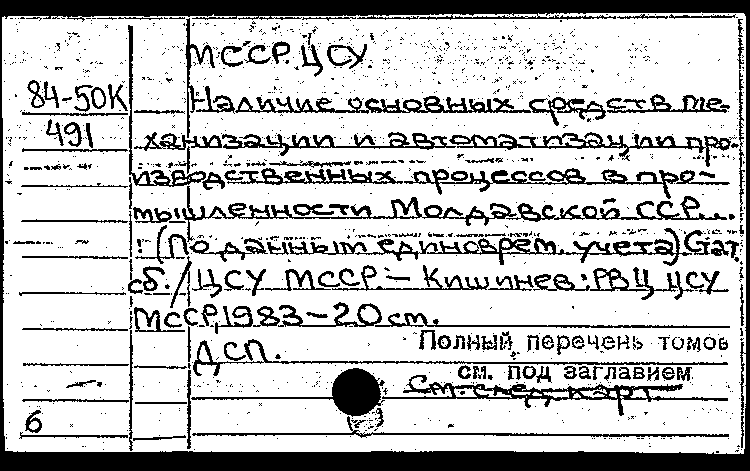 МССР. ЦСУ.
84-50К
491
Наличие основных средств ме-
ханизации и автоматизации про-
изводственных процессов в про-
мышленности Молдавской ССР...
: (По данным единоврем. учета) Стат.
сб. / ЦСУ МССР. – Кишинев : РВЦ ЦСУ
МССР, 1983 – 20 см.
ДСП.
Полный перечень томов
см. под заглавием
См. след. карт.
6